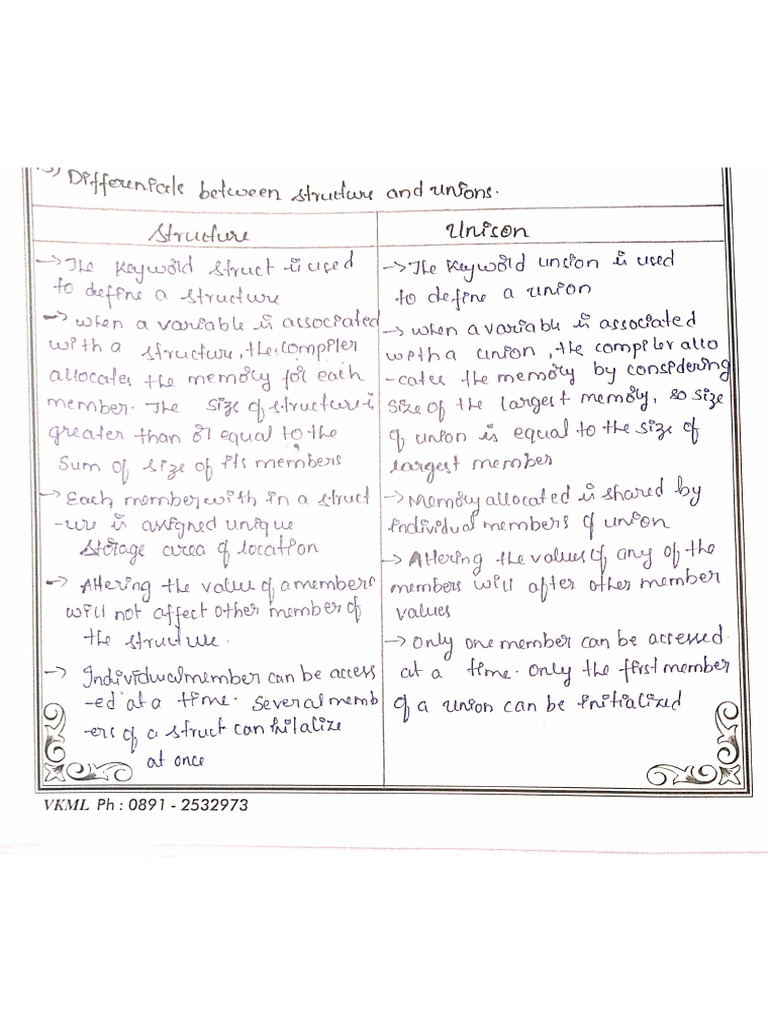 Differenicate between structure and unions.
Structure
→ The keyword struct is used
to define a structure
→ when a variable is associated
with a structure, the compiler
allocates the memory for each
member. The size of structure is
greater than or equal to the
Sum of size of its members
→ Each member with in a struct
-ure is assigned unique
storage area of location
→ Altering the value of a members
will not affect other member of
the structure.
→ Individual member can be access
-ed at a time. Several memb
-ers of a struct can
at once
Unison
→ The keyword unsion is used
to define a union
→ when a variable is associated
with a union, the compiler allo
-cates the memory by considering
size of the largest memory, so size
of union is equal to the size of
largest member
→ Memory allocated is shared by
individual members of union
→ Altering the values of any of the
members will after other member
values
→ Only one member can be accessed
at a time. Only the first member
of a union can be initialized
VKML Ph : 0891 - 2532973